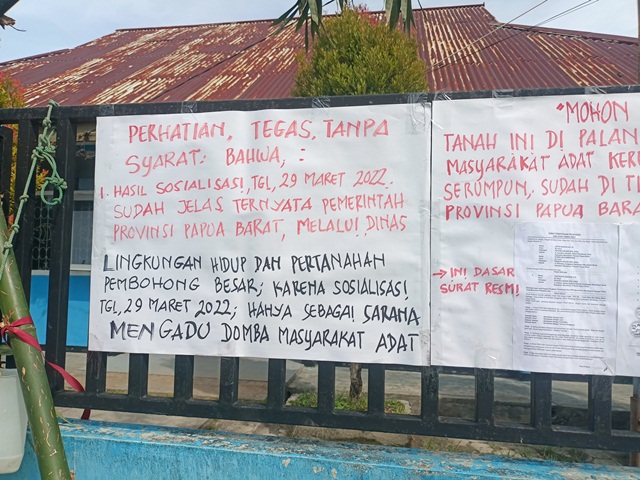 PERHATIAN, TEGAS, TANPA
SYARAT: BAHWA, :
1. HASIL SOSIALISASI, TGL, 29 MARET 2022.
SUDAH JELAS TERNYATA PEMERINTAH
PROVINSI PAPUA BARAT, MELALUI DINAS
LINGKUNGAN HIDUP DAN PERTANAHAN
PEMBOHONG BESAR; KARENA SOSIALISASI
TGL, 29 MARET 2022; HANYA SEBAGAI SARANA
MENGADU DOMBA MASYARAKAT ADAT
"MOHON
TANAH INI DI PALAN
MASYARAKAT ADAT KER
SERUMPUN, SUDAH DI TI
PROVINSI PAPUA BARA
→ INI DASAR
SURAT RESMI